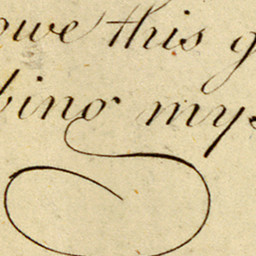 owe this g
bing mys